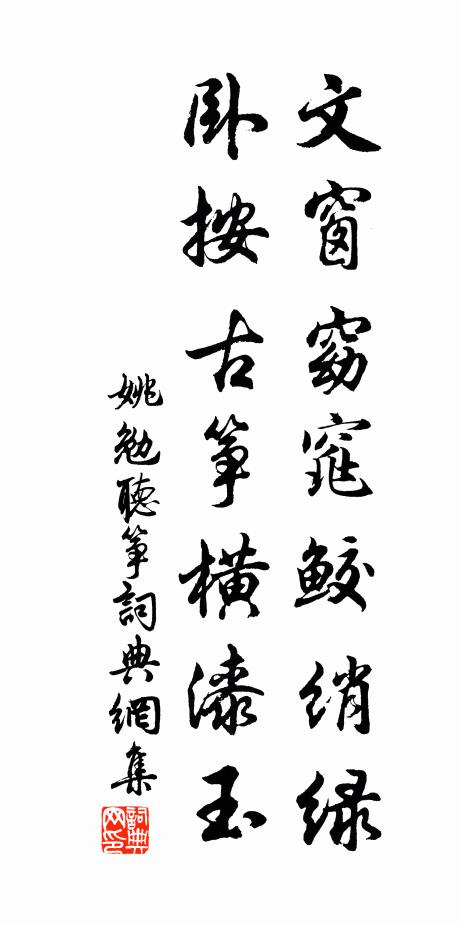 文窗窈窕鲛绡绿
卧按古筝横漆玉
姚勉聽筝詞典網集
詞典网印